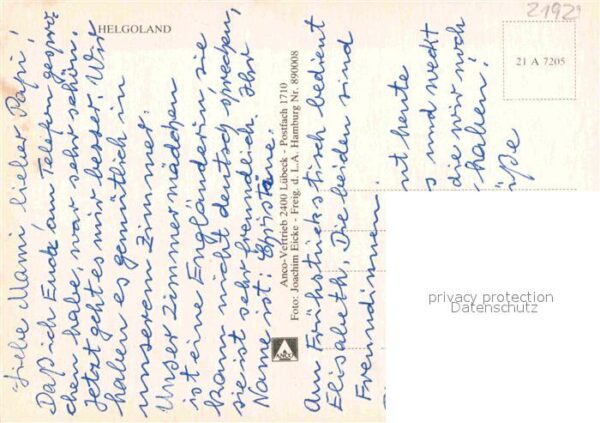 HELGOLAND
2192
21 A 7205
Anco-Vertrieb 2400 Lübeck - Postfach 1710
Foto: Joachim Eicke - Freig. d. L.A. Hamburg Nr. 890008
ANCO
Liebe Mami lieber Papi!
Daß ich Euch am Telefon gesprö-
chen habe, war sehr schön.
Jetzt geht es mir besser. Wir
haben es gemütlich in
unserem Zimmer.
Unser Zimmermädchen
ist eine Engländerin sie
kann nicht deutsch sprechen,
sie ist sehr freundlich. Ihr
Name ist:
Am Frühstückstisch bedient
Elisabeth, Die beiden sind
Freundinnen.
nt heute
s und weckt
die wir noch
haben!
üße
privacy protection
Datenschutz